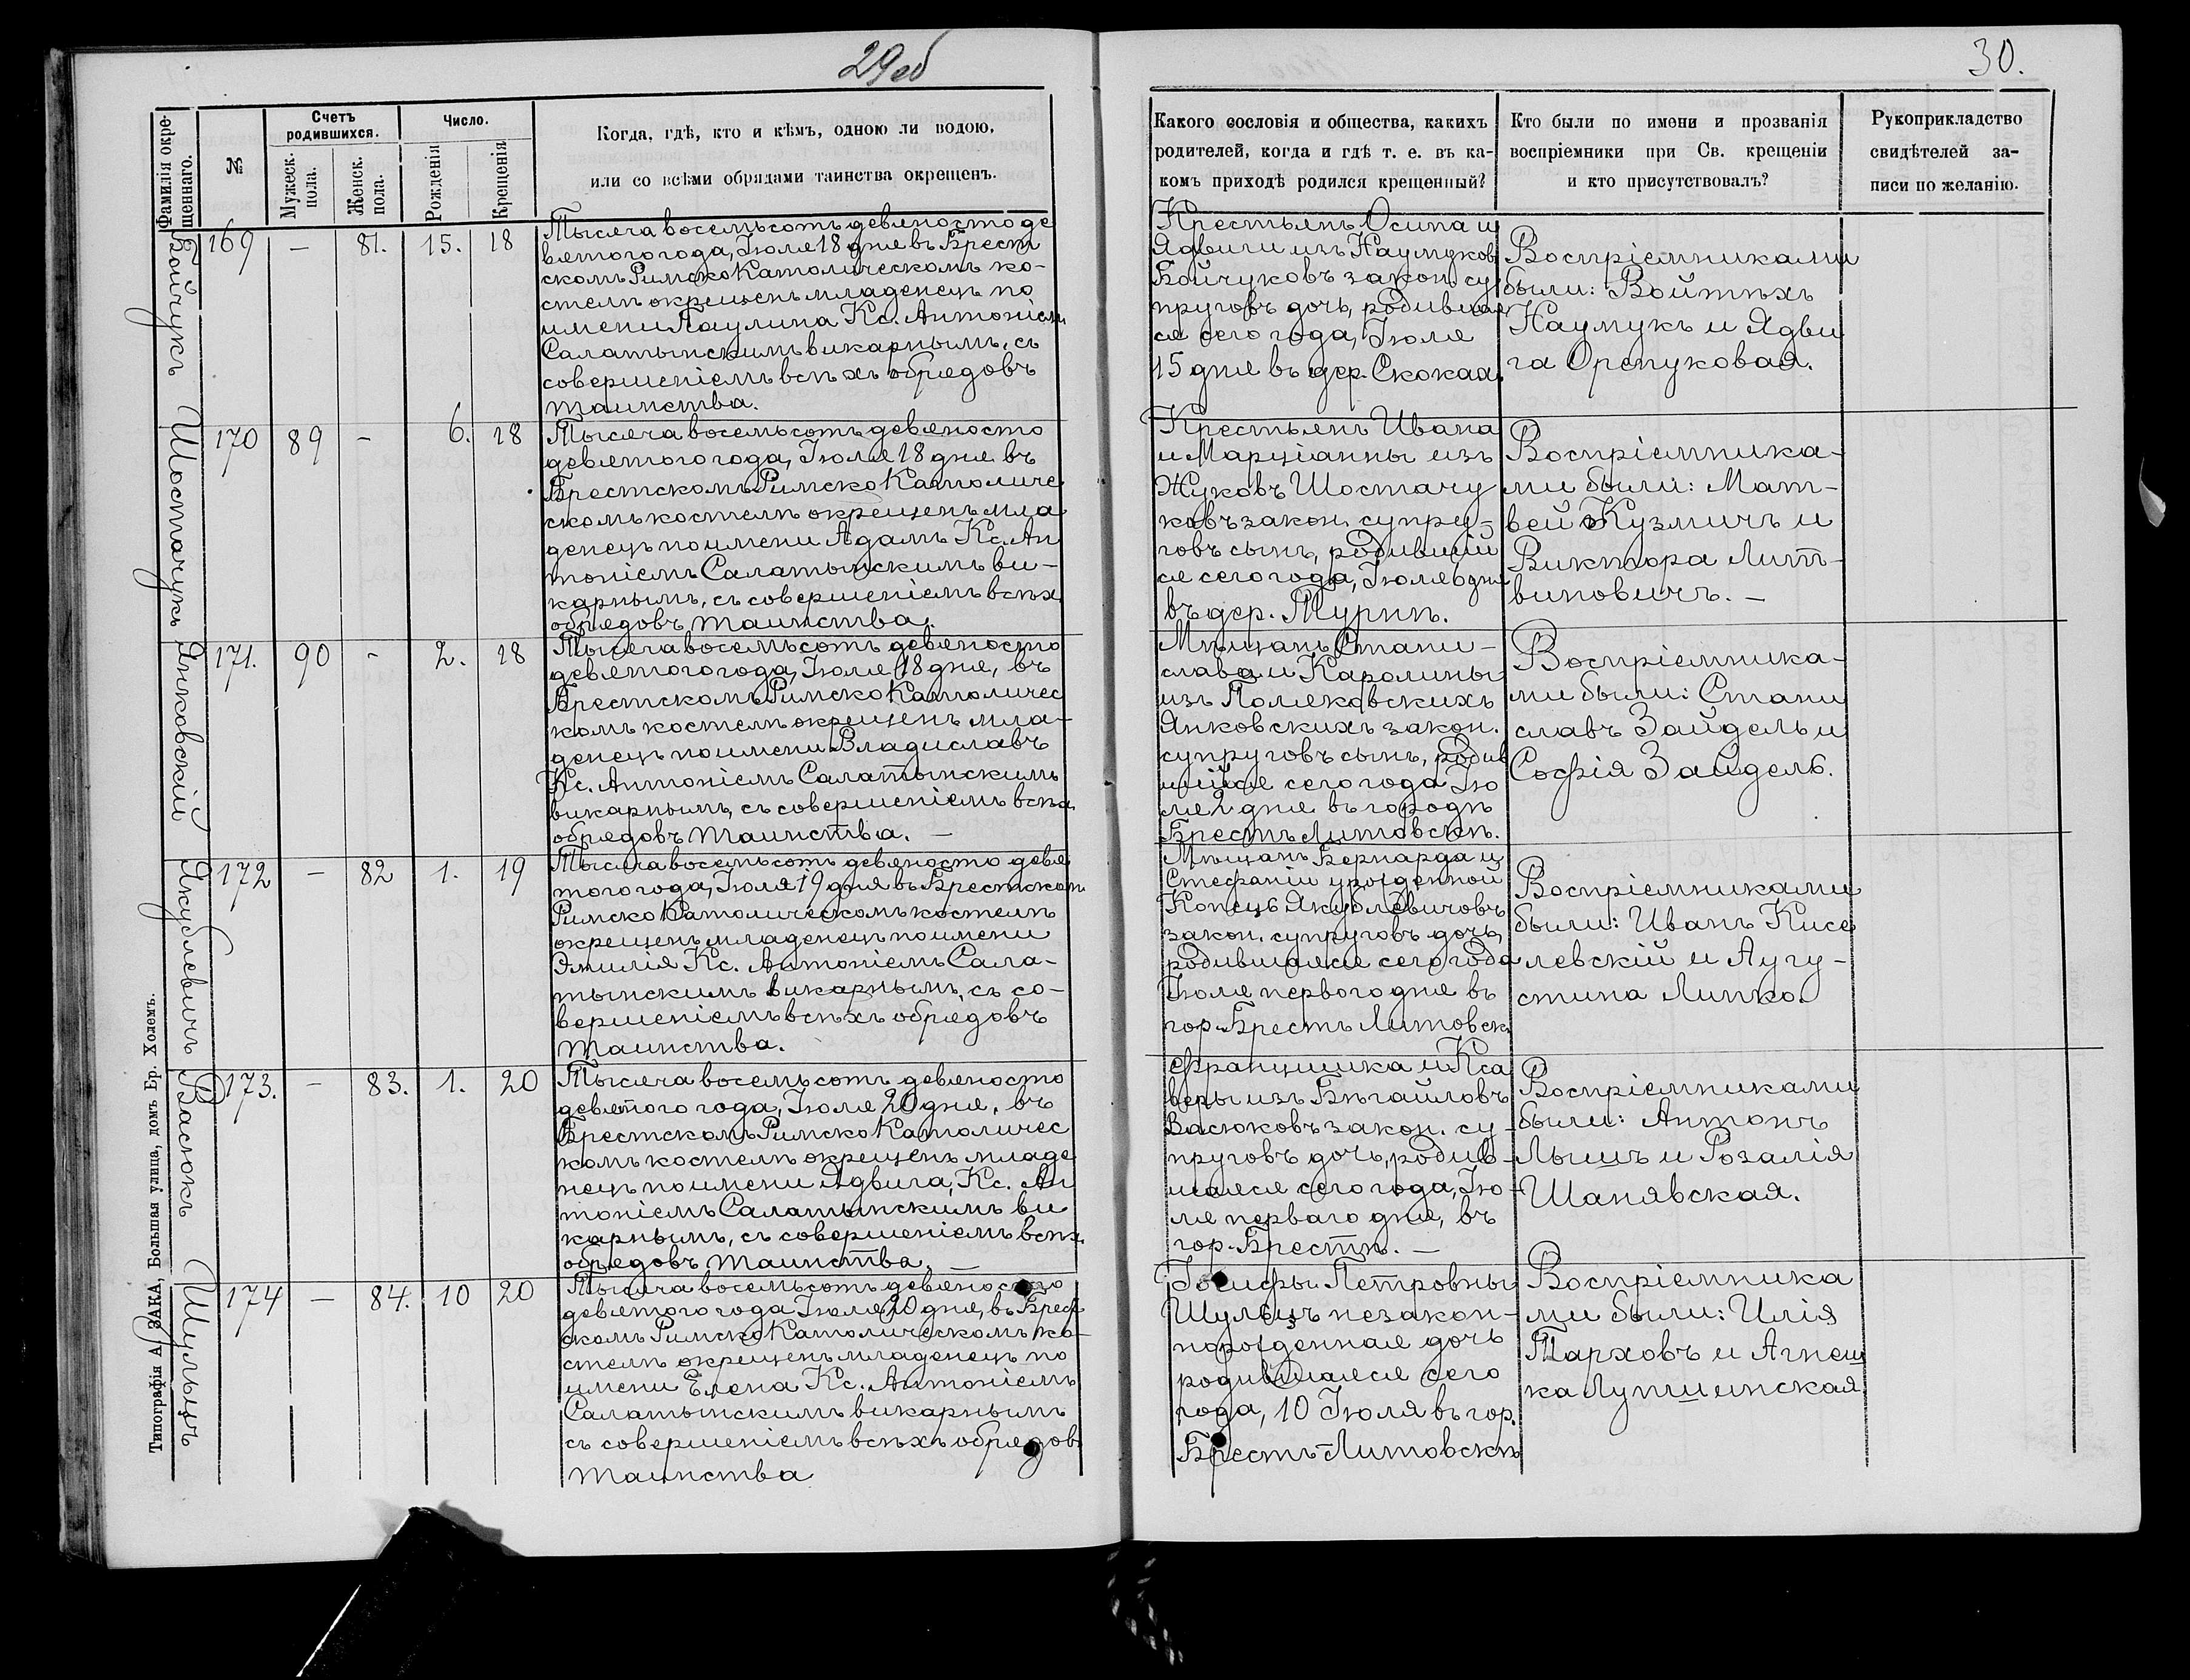 29об
Фамилія окре-
щеннаго.
№
Счетъ
родившихся.
Мужеск.
пола.
Женск.
пола.
Число.
Рожденія
Крещенія
Когда, гдѣ, кто и кѣмъ, одною ли водою,
или со всѣми обрядами таинства окрещенъ.
Бойчукъ
169 — 81. 15. 18
Тысяча восемьсотъ девяносто де
вятого года, Іюля 18 дня въ Брест
скомъ Римско Католическомъ ко-
стелѣ окрещенъ младенецъ по
имени Паулина Кс. Антоніемъ
Салатынскимъ викарнымъ, съ
совершеніемъ всѣхъ обрядовъ
таинства.
Шостачукъ
170 89 - 6. 18
Тысяча восемьсотъ девяносто
девятого года, Іюля 18 дня въ
Брестскомъ Римско Католиче
скомъ костелѣ окрещенъ мла
денецъ по имени Адамъ Кс. Ан
тоніемъ Салатынскимъ ви-
карнымъ, съ совершеніемъ всѣхъ
обрядовъ таинства.
Янковскій
171. 90 - 2. 18
Тысяча восемьсотъ девяносто
девятого года, Іюля 18 дня, въ
Брестскомъ Римско Католичес
комъ костелѣ окрещенъ мла-
денецъ по имени Владиславъ
Кс. Антоніемъ Салатынскимъ
викарнымъ, съ совершеніемъ всѣхъ
обрядовъ таинства. —
Якублевичъ
172 — 82 1. 19
Тысяча восемьсотъ девяносто девя
того года, Іюля 19 дня въ Брестскомъ
Римско Католическомъ костелѣ
окрещенъ младенецъ по имени
Эмилія Кс. Антоніемъ Сала-
тынскимъ викарнымъ, съ со-
вершеніемъ всѣхъ обрядовъ
таинства.
Васюкъ
173. - 83. 1. 20
Тысяча восемьсотъ девяносто
девятого года, Іюля 20 дня, въ
Брестскомъ Римско Католичес
комъ костелѣ окрещенъ младе
нецъ по имени Ядвига, Кс. Ан
тоніемъ Салатынскимъ ви
карнымъ, съ совершеніемъ всѣхъ
обрядовъ таинства.
Шульцъ
174 — 84. 10 20
Тысяча восемьсотъ девяносто
девятого года Іюля 20 дня, въ Брест
скомъ Римско Католическомъ ко-
стелѣ окрещенъ младенецъ по
имени Елена Кс. Антоніемъ
Салатынскимъ викарнымъ
съ совершеніемъ всѣхъ обрядовъ
таинства
Типографія А. ЗАКА, Большая улица, домъ Бр. Холемъ.
30.
Какого сословія и общества, какихъ
родителей, когда и гдѣ т. е. въ ка-
комъ приходѣ родился крещенный?
Кто были по имени и прозванія
воспріемники при Св. крещеніи
и кто присутствовалъ?
Рукоприкладство
свидѣтелей за-
писи по желанію.
Крестьянъ Осипа и
Ядвиги изъ Наумуковъ
Бойчуковъ закон. су
пруговъ дочь, родивша
ся сего года, Іюля
15 дня въ дер. Скокахъ
Воспріемниками
были: Войтѣхъ
Наумукъ и Ядви
га
Крестьянъ Ивана
и Марціанны изъ
Жуковъ Шостачу
ковъ закон. супру-
говъ сынъ, родившій
ся сего года, Іюля 6 дня
въ дер. Туринѣ.
Воспріемника-
ми были: Мат-
вей Кузмичъ и
Виктора Лит-
виновичъ. —
Мѣщанъ Стани-
слава и Каролины
изъ Поляковскихъ
Янковскихъ закон.
супруговъ сынъ, родив
шійся сего года Ію
ля 2 дня въ городѣ
Брестъ Литовскѣ.
Воспріемника-
ми были: Стани
славъ Зайдель и
Софія Зайдель.
Мѣщанъ Бернарда и
Стефаніи урожденной
Конецъ Якублевичовъ
закон. супруговъ дочь,
родившаяся сего года
Іюля первого дня въ
гор. Брестъ Литовск
Воспріемниками
были: Иванъ Кисе
левскій и Аугу-
стина Липко.
Францишка и Кса
веры изъ Бѣгайловъ
Васюковъ закон. су-
пруговъ дочь, родив-
шаяся сего года, Ію-
ля перваго дня, въ
гор. Брестѣ. —
Воспріемниками
были: Антонъ
Лышъ и Розалія
Шанявская.
Іосифы Петровны
Шульцъ незакон-
норожденная дочь
родившаяся сего
года, 10 Іюля въ гор.
Брестъ-Литовскѣ
Воспріемника
ми были: Илія
Тарховъ и Агнеш
ка